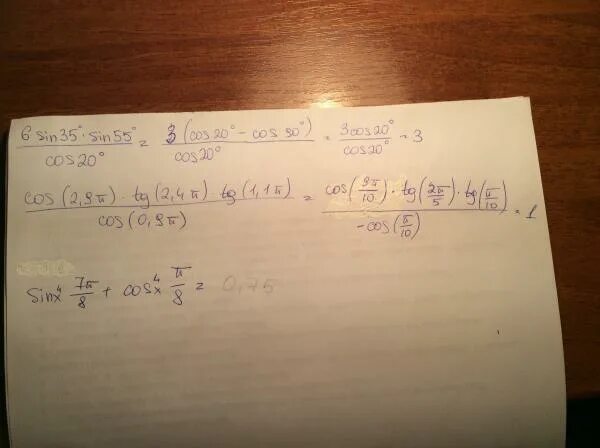 6 sin35° · sin55° / cos20° = 3 (cos20° − cos90°) / cos20° = 3cos20° / cos20° = 3
cos(2,9π) · tg(2,4π) · tg(1,1π) / cos(0,9π) = cos(9π/10) · tg(2π/5) · tg(π/10) / −cos(π/10) = 1
sinx⁴ 7π/8 + cosx⁴ π/8 = 0,75